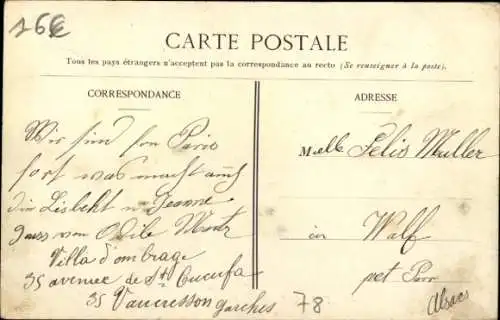 16€
CARTE POSTALE
Tous les pays étrangers n'acceptent pas la correspondance au recto (Se renseigner à la poste).
CORRESPONDANCE
ADRESSE
Wir sind von Paris
fort was macht auch
die Lisbeht u Jeanne
von Odile
Villa d'ombrage
35 avenue de St. Cucufa
35 Vaucresson garches
Melle Felis Muller
in Walf
Alsace
78